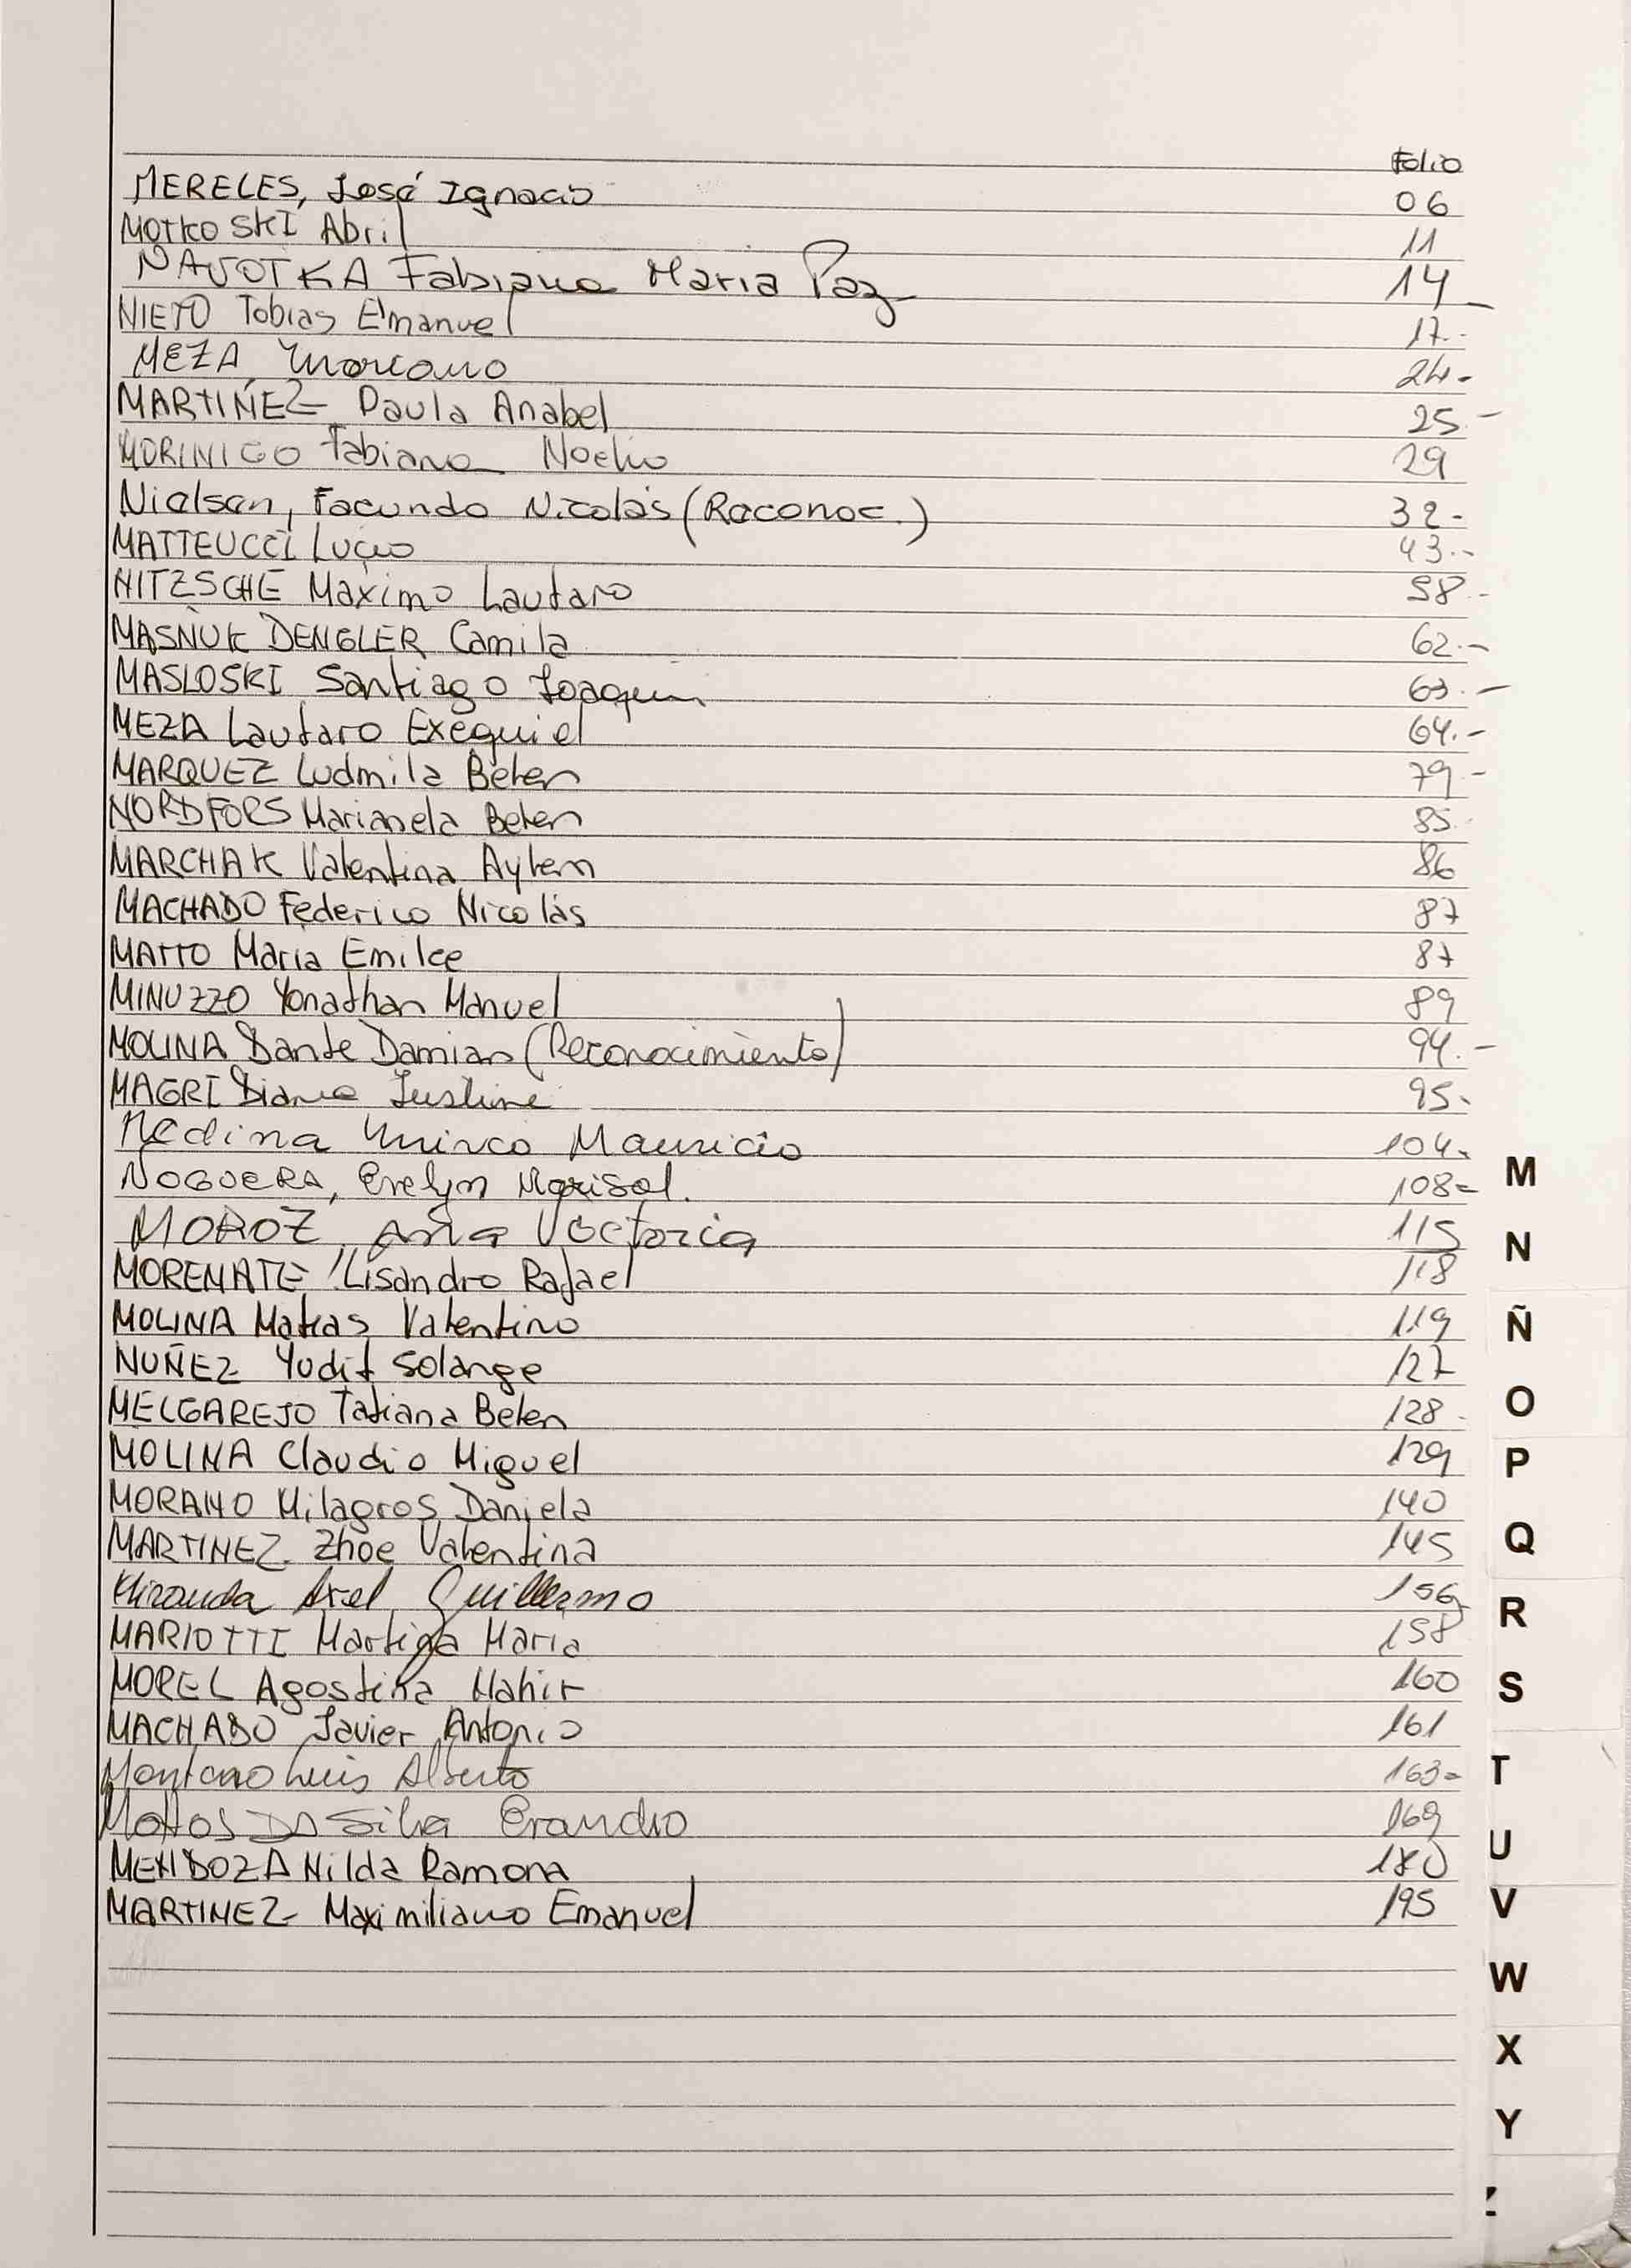 Folio
MERELES, José Ignacio 06
MOTKOSKI Abril 11
NAVOTKA Fabiana Maria Paz 14
NIETO Tobias Emanuel 17.-
MEZA Marcano 24-
MARTINEZ Paula Anabel 25.-
MORINIGO Fabiana Noelia 29
Nielsen, Facundo Nicolás (Reconoc.) 32-
MATTEUCCI Lucio 43.-
NITZSCHE Maximo Lautaro 58.-
MASÑUK DENGLER Camila 62.-
MASLOSKI Santiago Joaquin 63.-
MEZA Lautaro Exequiel 64.-
MARQUEZ Ludmila Belen 79.-
NORDFORS Marianela Belen 85.
MARCHAK Valentina Aylem 86
MACHADO Federico Nicolás 87
MATTO Maria Emilce 87
MINUZZO Yonathan Manuel 89
MOLINA Dante Damian (Reconocimiento) 94.-
MAGRI Diana Justine 95.
Medina Mirco Mauricio 104.
NOGUERA, Evelyn Marisol. 108=
MOROZ, Ana Victoria 115
MORENATE Lisandro Rafael 118
MOLINA Matias Valentino 119
NUÑEZ Yudit Solange 127
MELGAREJO Tatiana Belen 128.
MOLINA Claudio Miguel 129
MORANO Milagros Daniela 140
MARTINEZ Zhoe Valentina 145
Miranda Axel Guillermo 156
MARIOTTI Martina Maria 158
MOREL Agostina Nahir 160
MACHADO Javier Antonio 161
Montano Luis Alberto 163=
Mattos Da Silva Erandio 169
MENDOZA Nilda Ramona 180
MARTINEZ Maximiliano Emanuel 195
M
N
Ñ
O
P
Q
R
S
T
U
V
W
X
Y
Z